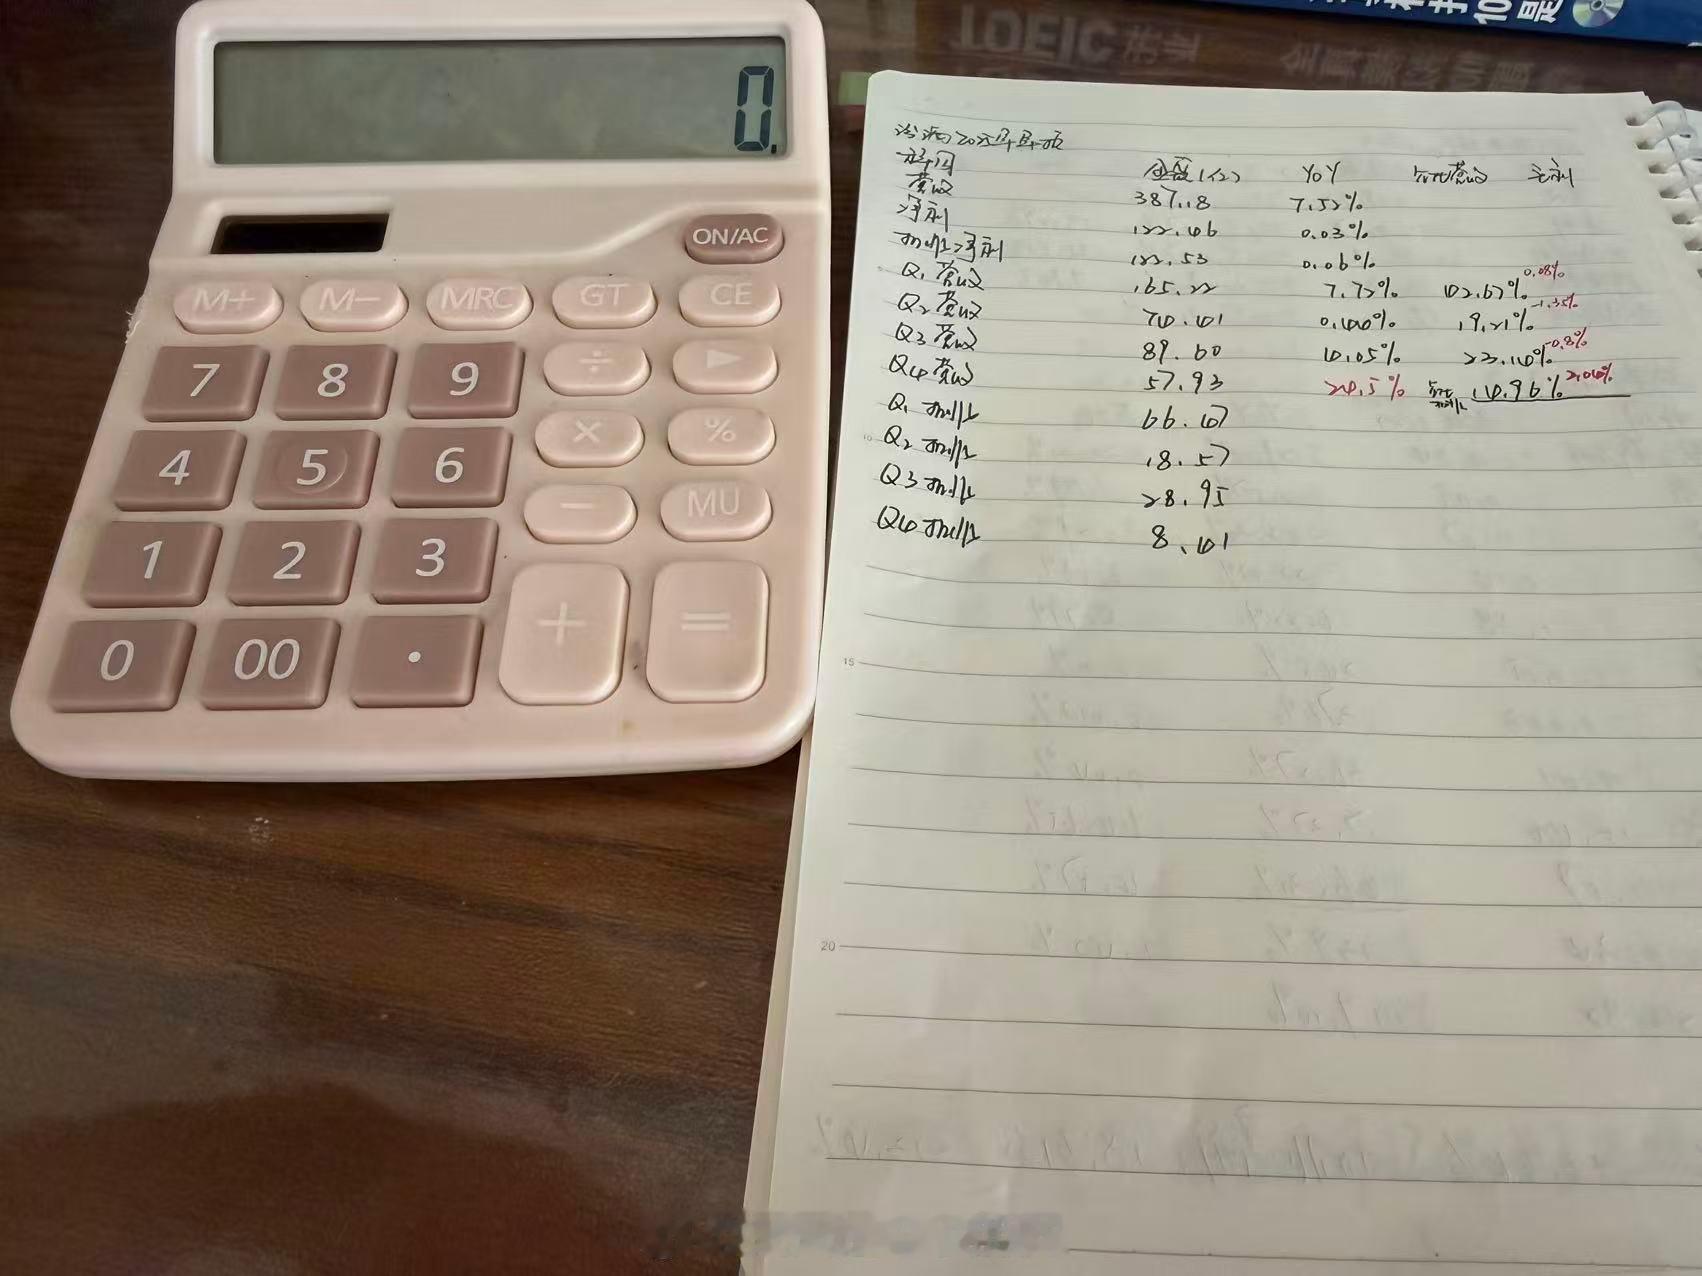 TOEIC
0.
ON/AC
M+ M- MRC GT CE
7 8 9 ÷ ▶
4 5 6 × %
1 2 3 - MU
0 00 . + =
汾酒2025年年报
科目 金额(亿) YoY 占比营收 毛利
营收 387.18 7.52%
净利 122.46 0.03%
扣非净利 122.53 0.06%
Q1营收 165.22 7.72% 42.67% 0.08%
Q2营收 74.41 0.44% 19.21% -1.35%
Q3营收 89.60 4.05% 23.14% -0.8%
Q4营收 57.93 24.5% 14.96% 2.04%
Q1扣非 66.47
Q2扣非 18.57
Q3扣非 28.95
Q4扣非 8.41
15
20